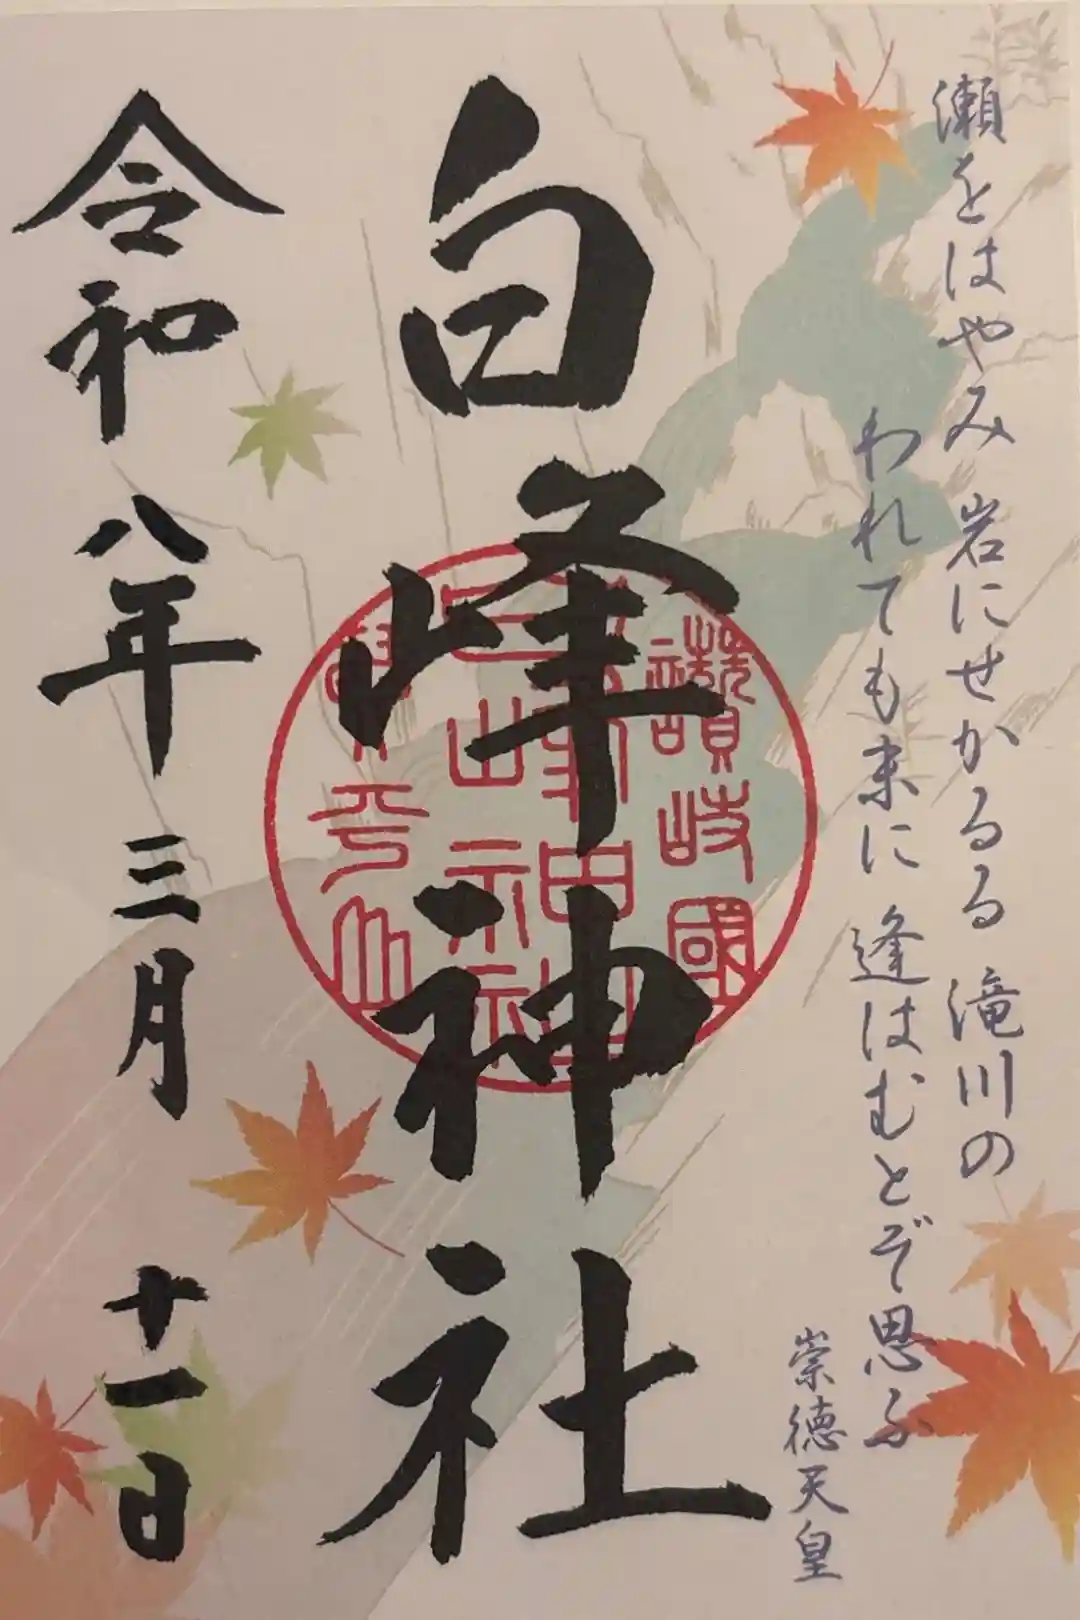 瀬をはやみ 岩にせかるる 滝川の
われても末に 逢はむとぞ思ふ
崇徳天皇
白峰神社
讃岐國
平山
令和八年 三月 十一日